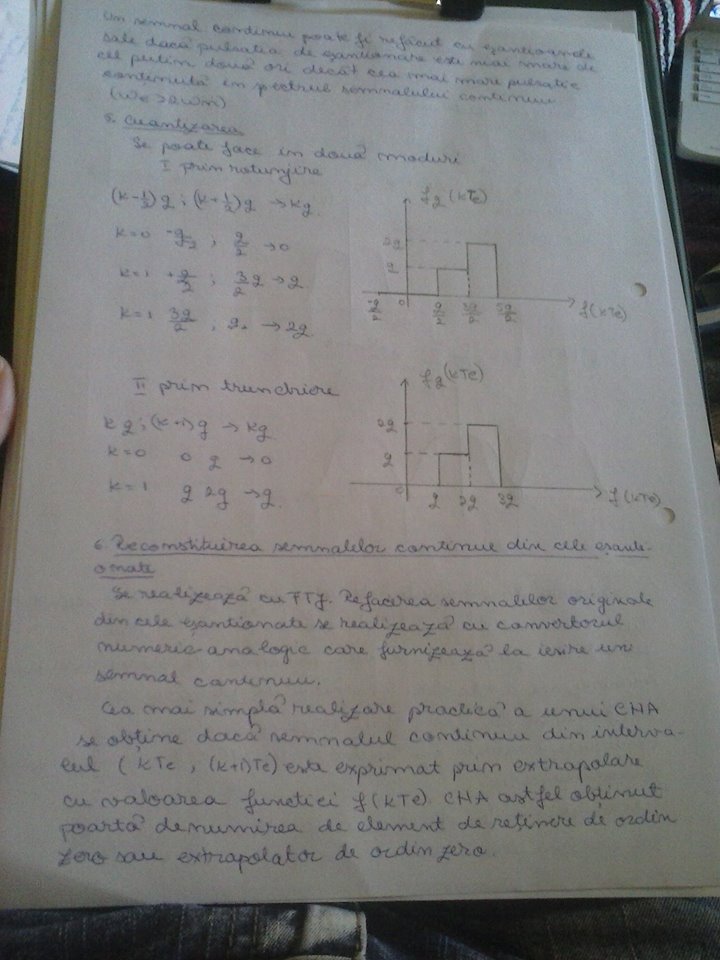 Un semnal continuu poate fi refăcut cu eșantioanele
sale dacă pulsatia de esantionare este mai mare de
cel putin două ori decât cea mai mare pulsatie
continută în pectrul semnalului continuu
(ωe > 2ωm)
5. Cuantizarea
Se poate face in două moduri
I prin rotunjire
(k-1/2)g ; (k+1/2)g → kg
k=0 -g/2 ; g/2 → 0
k=1 +g/2 ; 3/2 g → g
k=1 3g/2 , → 2g
fg(kTe)
2g
g
-g/2 0 g/2 3g/2 5g/2 f(kTe)
II prin trunchiere
kg ; (k+1)g → kg
k=0 0 g → 0
k=1 g 2g → g
fg(kTe)
2g
g
0 g 2g 3g f(kTe)
6. Reconstituirea semnalelor continue din cele eșanti-
onate
Se realizează cu FTJ. Refacerea semnalelor originale
din cele eșantionate se realizează cu convertorul
numeric analogic care furnizează la iesire un
semnal continuu.
Cea mai simplă realizare practică a unui CNA
se obține dacă semnalul continuu din interva-
lul (kTe, (k+1)Te) este exprimat prin extrapolare
cu valoarea functiei f(kTe) CNA astfel obținut
poartă denumirea de element de reținere de ordin
zero sau extrapolator de ordin zero.